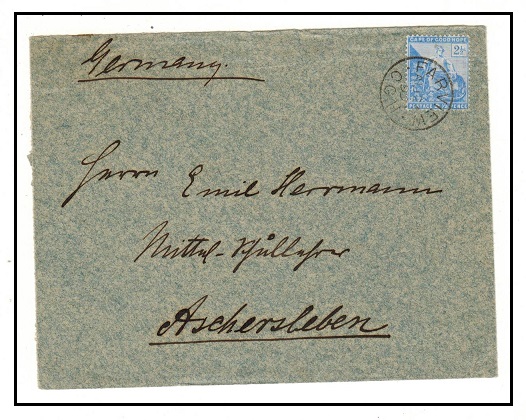 Germany.
CAPE OF GOOD HOPE
2½
Herrn Emil Herrmann
Mittel-Schullehrer
Aschersleben